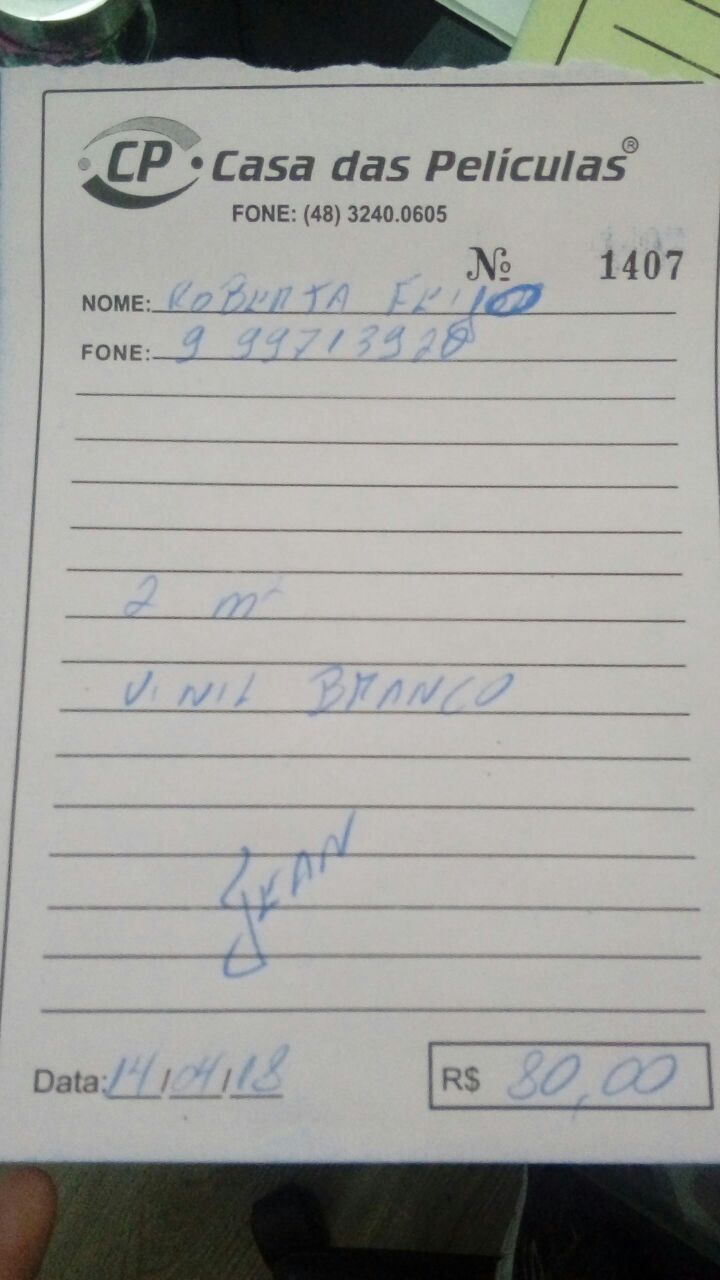 CP Casa das Películas®
FONE: (48) 3240.0605
Nº 1407
NOME: ROBERTA FEIJOO
FONE: 9 99713928
2 m²
VINIL BRANCO
JEAN
Data: 14/04/18
R$ 80,00